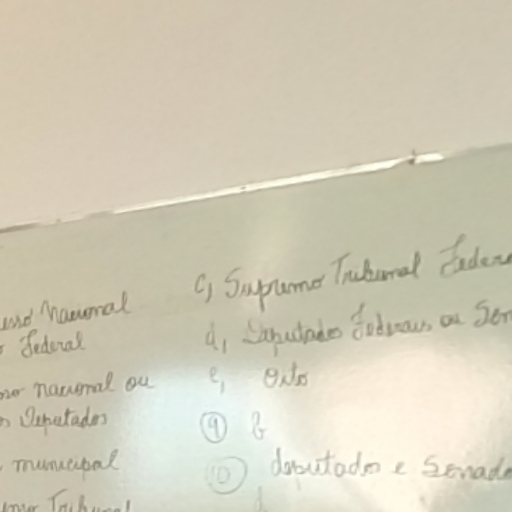 Nacional
Federal
nacional ou
Deputados
municipal
Tribunal
c) Supremo Tribunal
d) Deputados Federais ou
e) Oito
9 b
10 deputados e